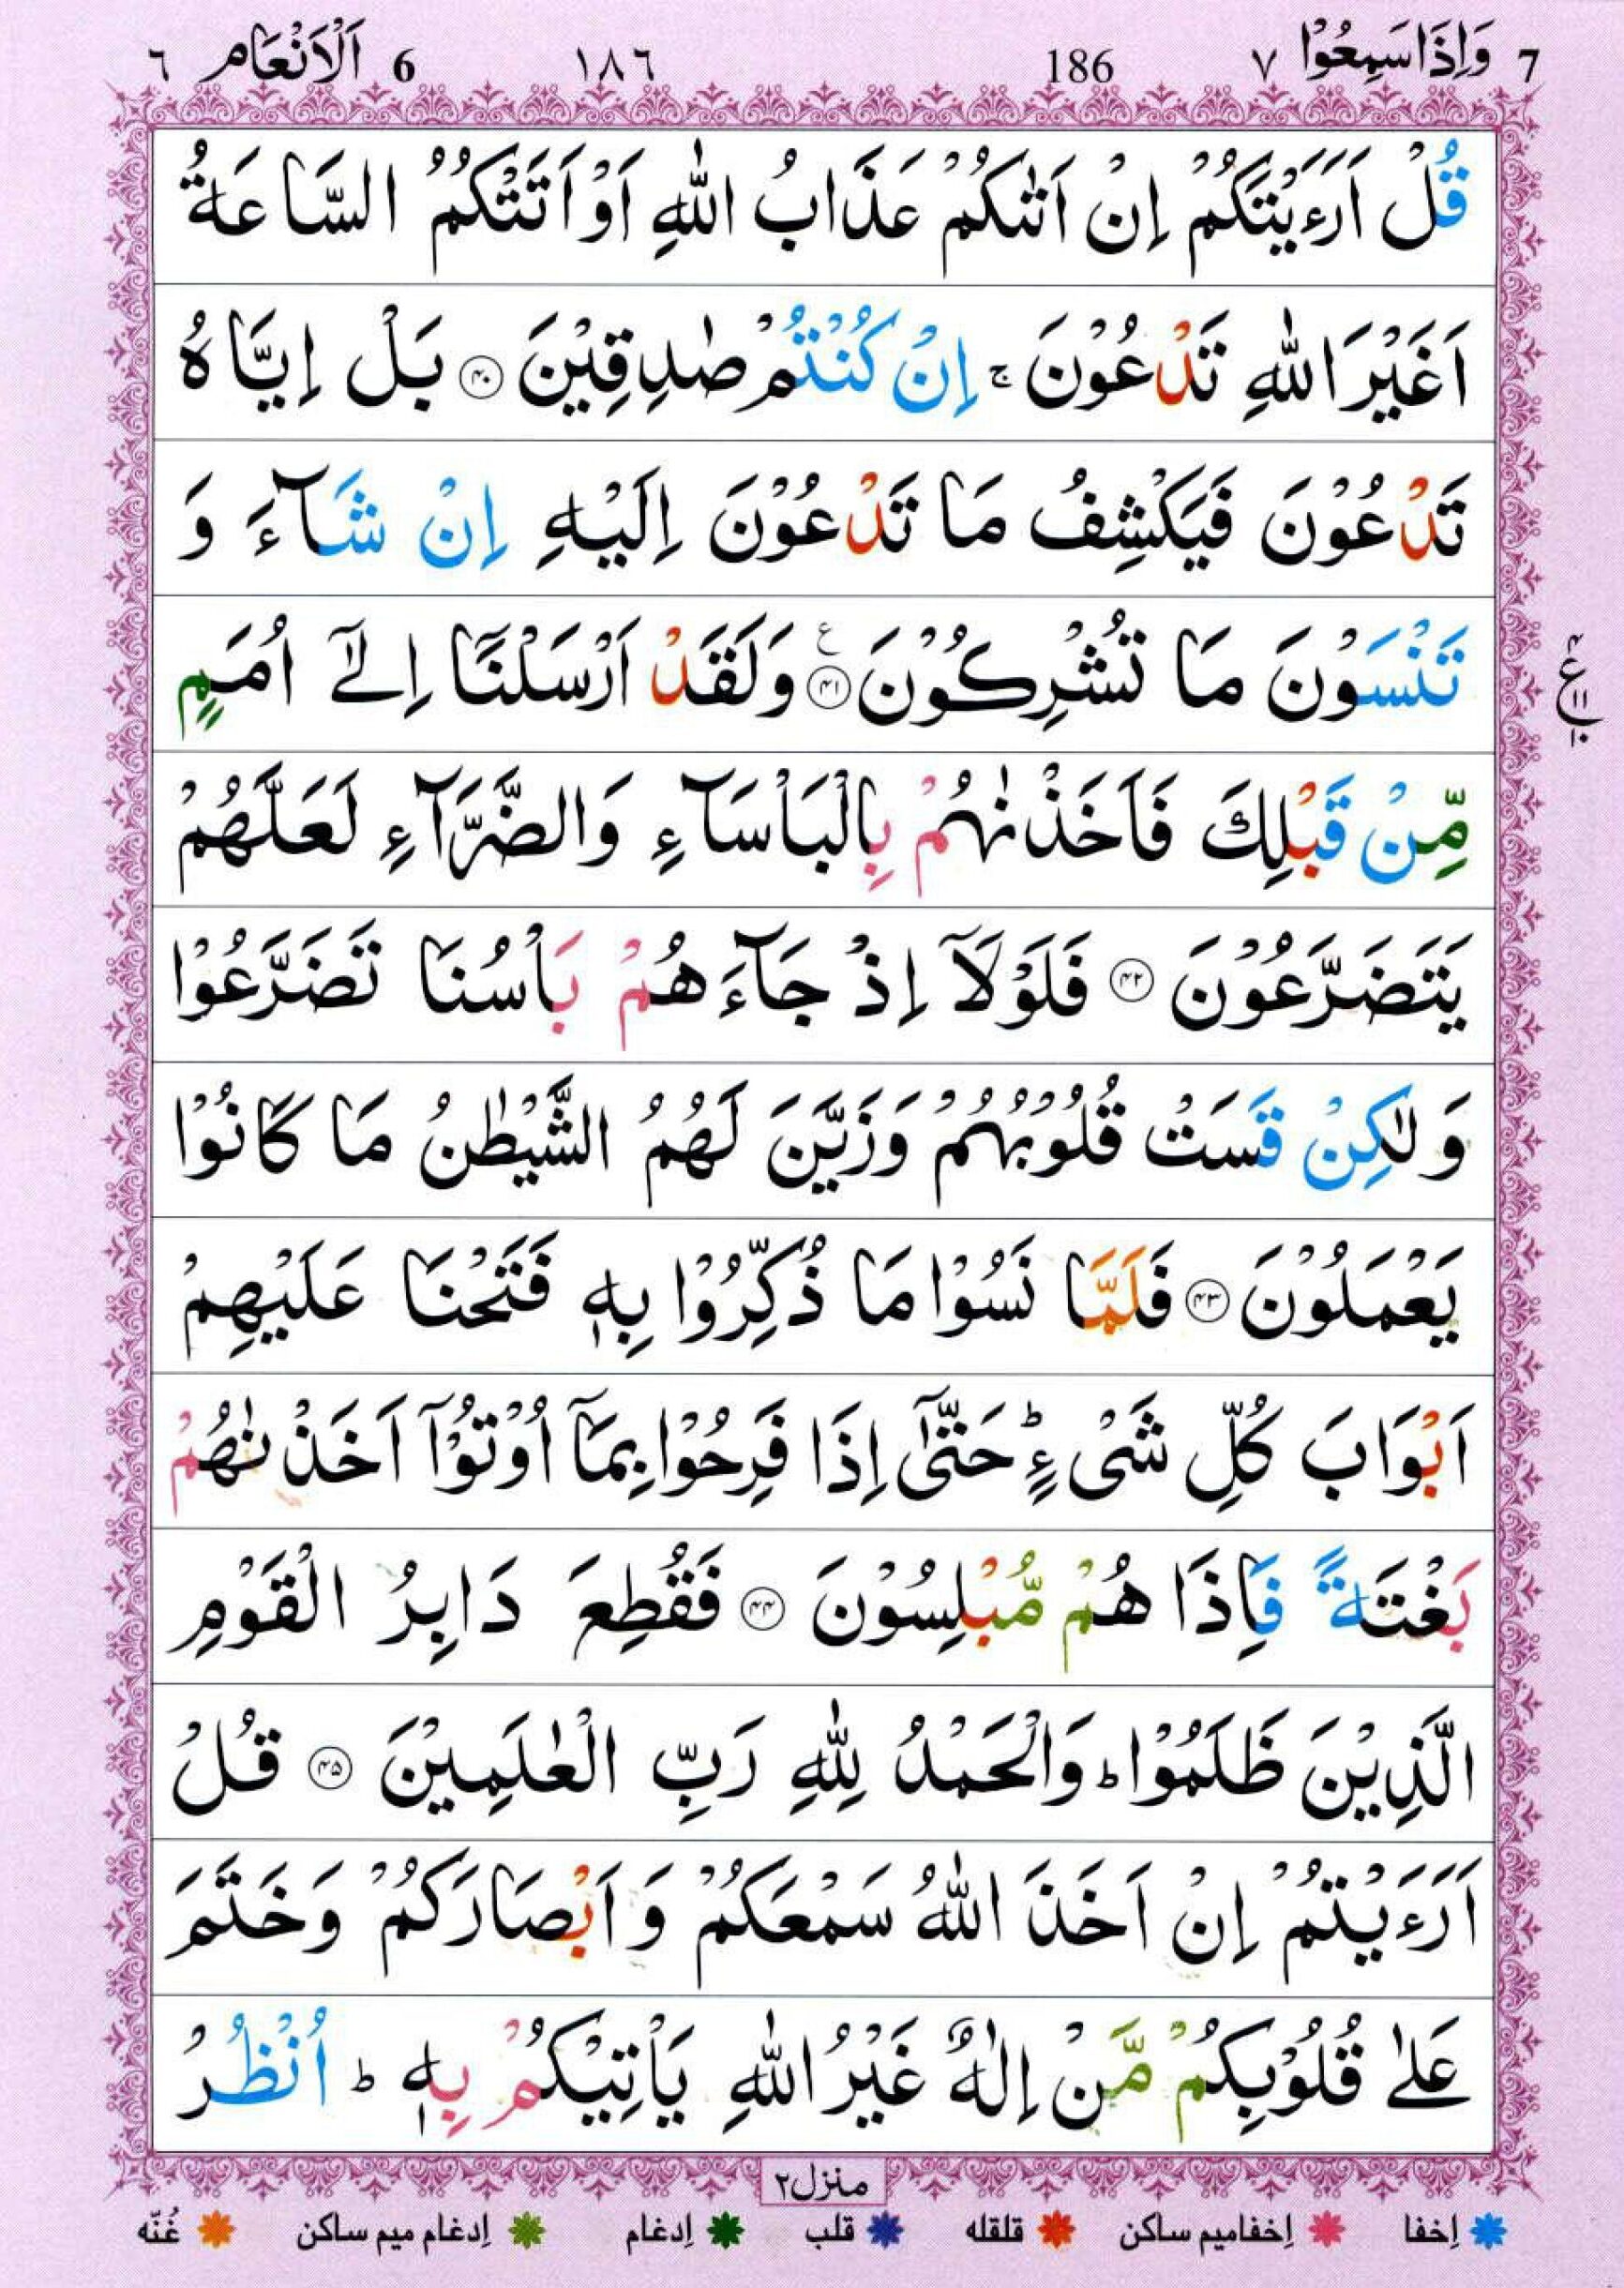 7 وَاِذَا سَمِعُوْا ٧ 186 ١٨٦ 6 اَلْاَنْعَام ٦
قُلْ اَرَءَيْتَكُمْ اِنْ اَتٰىكُمْ عَذَابُ اللّٰهِ اَوْ اَتَتْكُمُ السَّاعَةُ
اَغَيْرَ اللّٰهِ تَدْعُوْنَ ۚ اِنْ كُنْتُمْ صٰدِقِيْنَ ۴۰ بَلْ اِيَّاهُ
تَدْعُوْنَ فَيَكْشِفُ مَا تَدْعُوْنَ اِلَيْهِ اِنْ شَآءَ وَ
تَنْسَوْنَ مَا تُشْرِكُوْنَ ۴۱ ع وَلَقَدْ اَرْسَلْنَاۤ اِلٰۤى اُمَمٍ
مِّنْ قَبْلِكَ فَاَخَذْنٰهُمْ بِالْبَاْسَآءِ وَالضَّرَّآءِ لَعَلَّهُمْ
يَتَضَرَّعُوْنَ ۴۲ فَلَوْلَاۤ اِذْ جَآءَهُمْ بَاْسُنَا تَضَرَّعُوْا
وَلٰكِنْ قَسَتْ قُلُوْبُهُمْ وَزَيَّنَ لَهُمُ الشَّيْطٰنُ مَا كَانُوْا
يَعْمَلُوْنَ ۴۳ فَلَمَّا نَسُوْا مَا ذُكِّرُوْا بِهٖ فَتَحْنَا عَلَيْهِمْ
اَبْوَابَ كُلِّ شَیْءٍ ؕ حَتّٰۤى اِذَا فَرِحُوْا بِمَاۤ اُوْتُوْۤا اَخَذْنٰهُمْ
بَغْتَةً فَاِذَا هُمْ مُّبْلِسُوْنَ ۴۴ فَقُطِعَ دَابِرُ الْقَوْمِ
الَّذِيْنَ ظَلَمُوْا ؕ وَالْحَمْدُ لِلّٰهِ رَبِّ الْعٰلَمِيْنَ ۴۵ قُلْ
اَرَءَيْتُمْ اِنْ اَخَذَ اللّٰهُ سَمْعَكُمْ وَ اَبْصَارَكُمْ وَخَتَمَ
عَلٰى قُلُوْبِكُمْ مَّنْ اِلٰهٌ غَيْرُ اللّٰهِ يَاْتِيْكُمْ بِهٖ ؕ اُنْظُرْ
ع ۴ ۱۱ ۱۰
منزل۲
اِخفا اِخفامیم ساکن قلقله قلب اِدغام اِدغام میم ساکن غُنّه